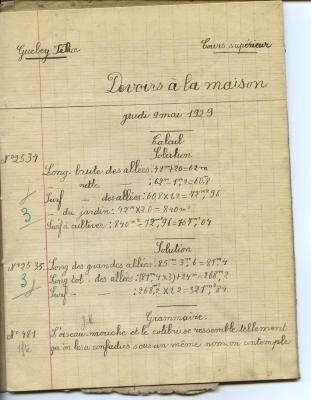 Cours supérieur
Devoirs à la maison
jeudi 9 mai 1929
Calcul
Solution
N° 2534
Long. brute des allées: 42m+20=62m
- nette - : 62m-1m,2=60,8
Surf - des allées: 60,8 x 1,2 = 72m²,96
- du jardin: 42m x 20 = 840m²
Surf à cultiver: 840m²-72m²,96=767m²,04
3
Solution
N° 2535. Long des grandes allées: 85m-3m,6=81m,4
Long tot - des allées: (81m,4 x3)+24m=268m,2
Surf - - : 268,2 x 1,2 = 321m²,84.
3
Grammaire
N° 481 L'oiseau-mouche et le colibri se ressemble tellement
qu'on les a confondus sous un même nom, on contemple